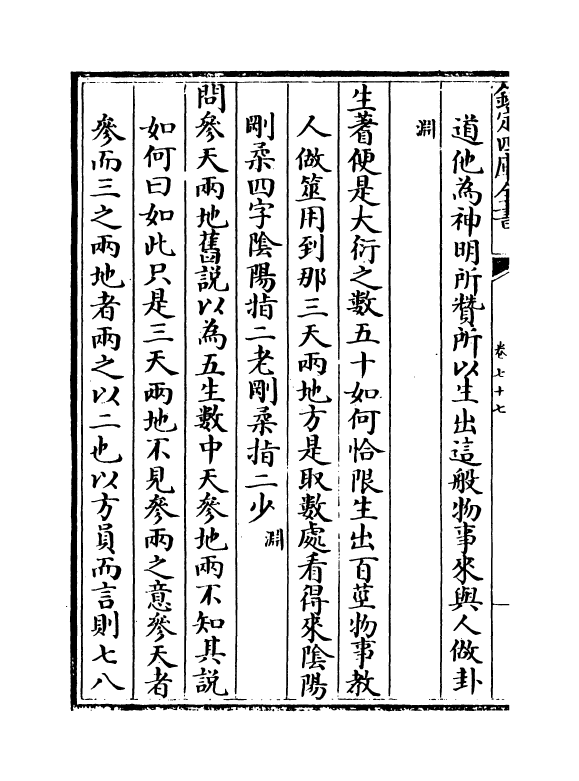 欽定四庫全書
卷七十七
道他為神明所贊所以生出這般物事來與人做卦
淵
生蓍便是大衍之數五十如何恰限生出百莖物事教
人做筮用到那三天兩地方是取數處看得來陰陽
剛柔四字陰陽指二老剛柔指二少淵
問參天兩地舊説以為五生數中天參地兩不知其説
如何曰如此只是三天兩地不見參兩之意參天者
參而三之兩地者兩之以二也以方員而言則七八